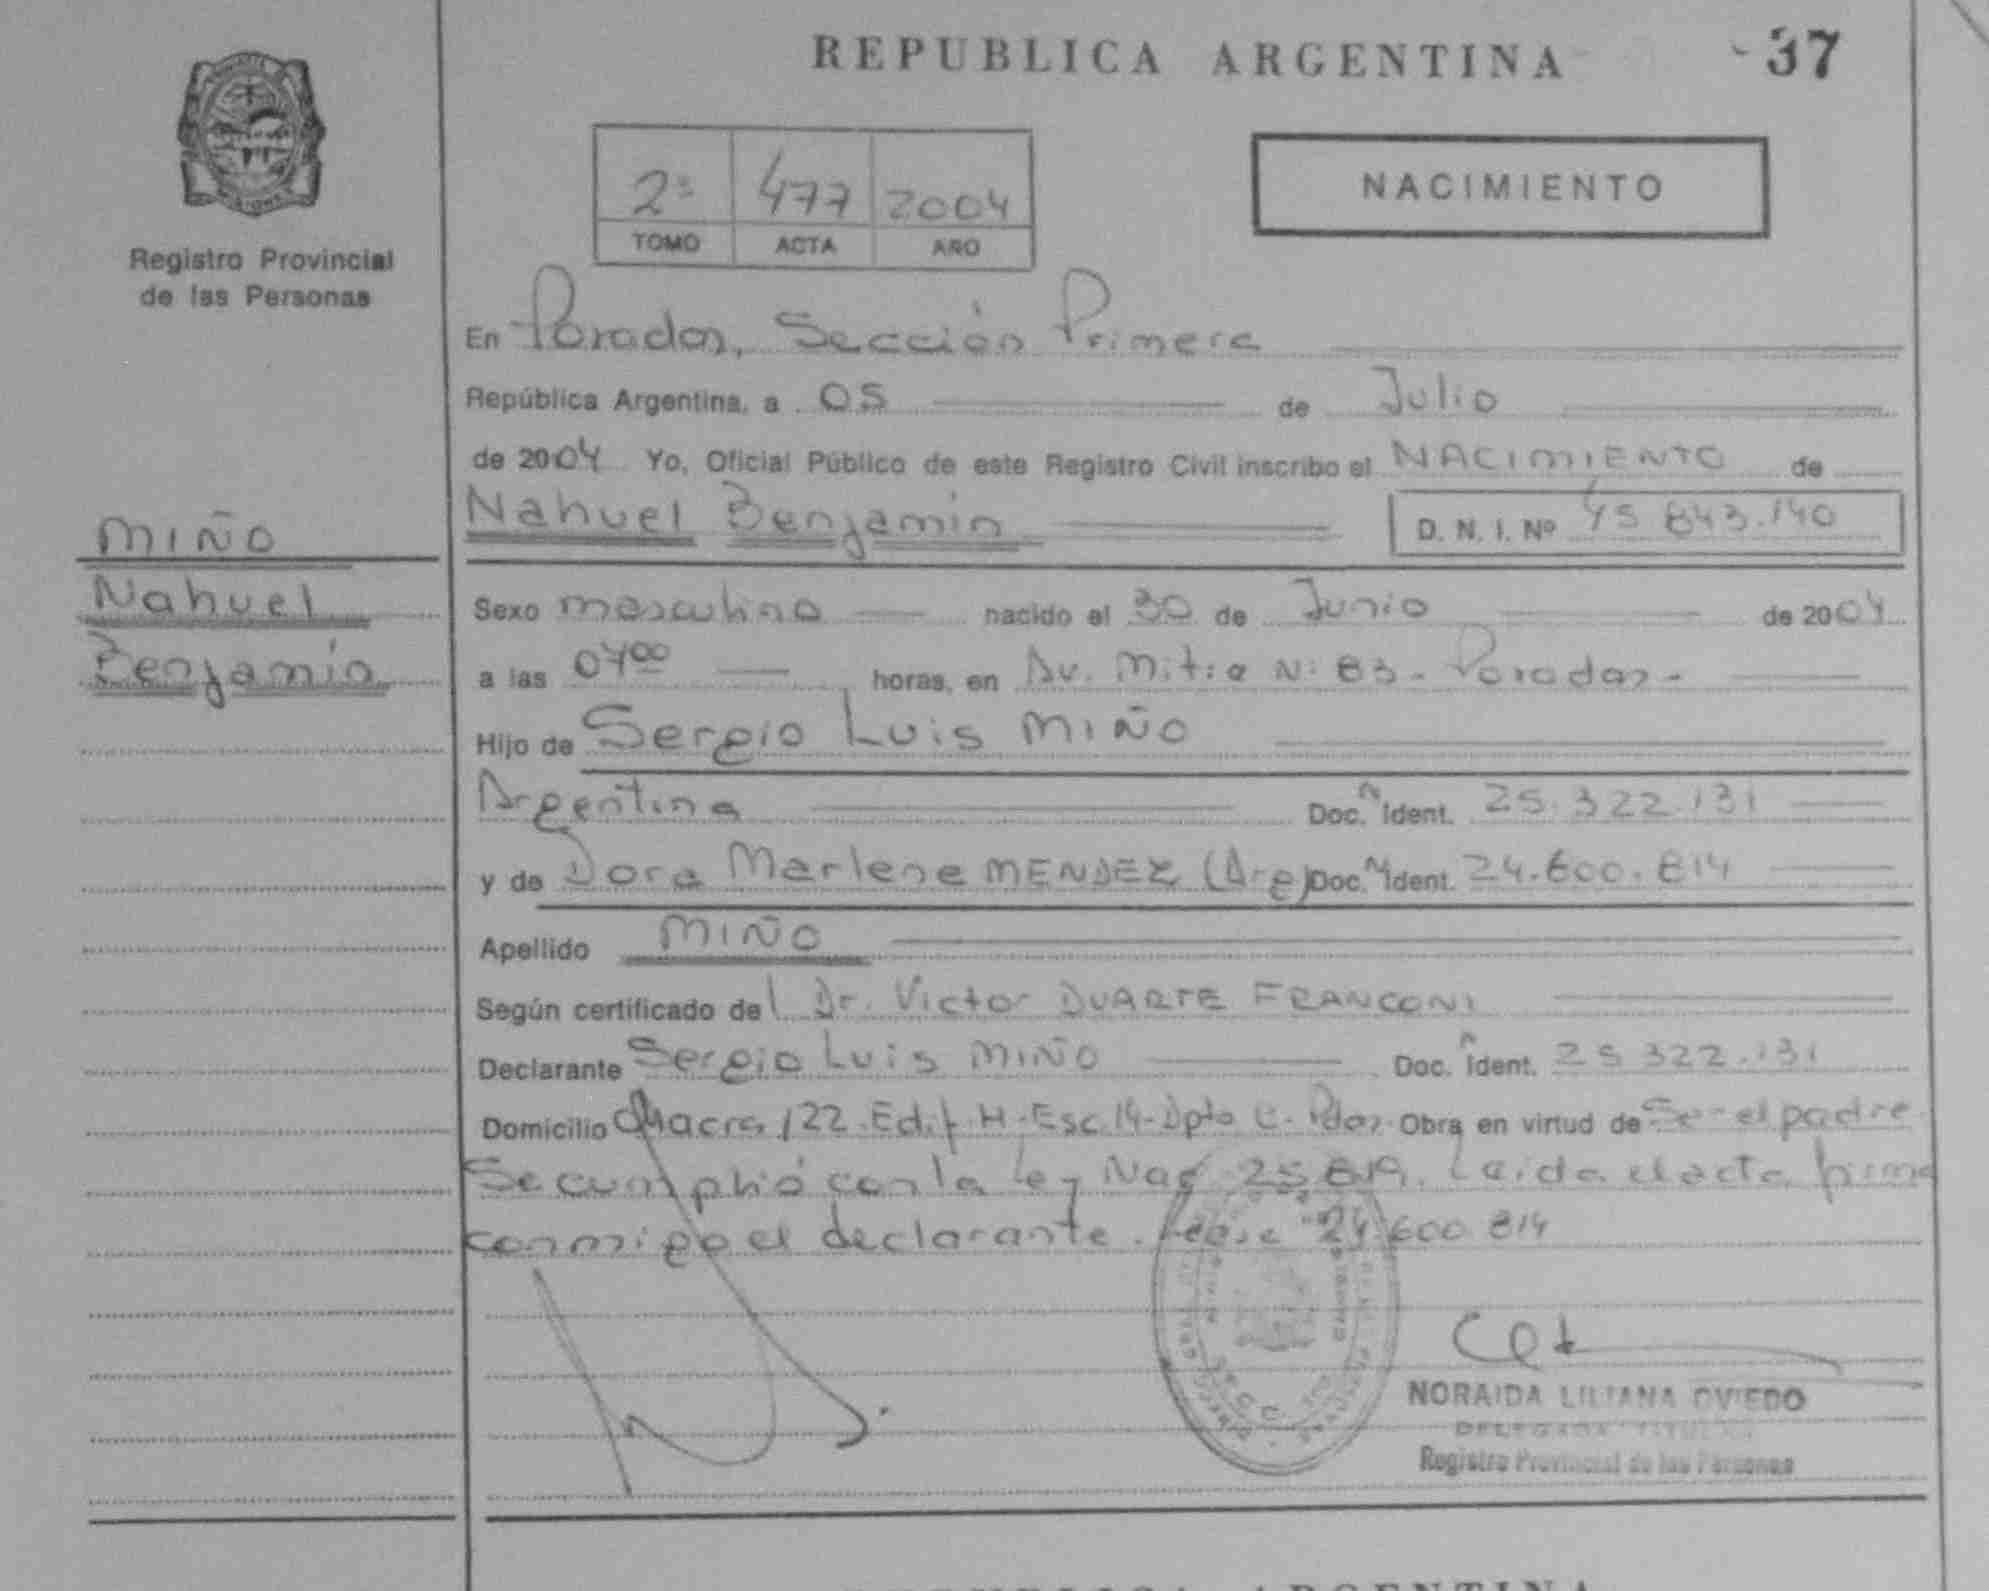 REPUBLICA ARGENTINA
37
Registro Provincial
de las Personas
2º 477 2004
TOMO ACTA AÑO
NACIMIENTO
En Posadas, Sección Primera
República Argentina, a 05 de Julio
de 2004 Yo, Oficial Público de este Registro Civil inscribo el NACIMIENTO de
Nahuel Benjamín D. N. I. Nº 45 843.140
MIÑO
Nahuel
Benjamín
Sexo masculino nacido el 30 de Junio de 2004
a las 0400 horas, en Av. Mitre Nº 83 - Posadas -
Hijo de Sergio Luis MIÑO
Argentina Doc. Ident. 25.322.131
y de Dora Marlene MENDEZ (Arg) Doc. Ident. 24.600.814
Apellido MIÑO
Según certificado del Dr. Victor DUARTE FRANCONI
Declarante Sergio Luis MIÑO Doc. Ident. 25 322.131
Domicilio Chacra 122. Edif. H - Esc. 14 - Dpto C - Pdas. Obra en virtud de Ser el padre.
Se cumplió con la Ley Nac 25 819. Leída el acta firma
conmigo el declarante. Léase "24.600 814
NORAIDA LILIANA OVIEDO
DELEGADA TITULAR
Registro Provincial de las Personas